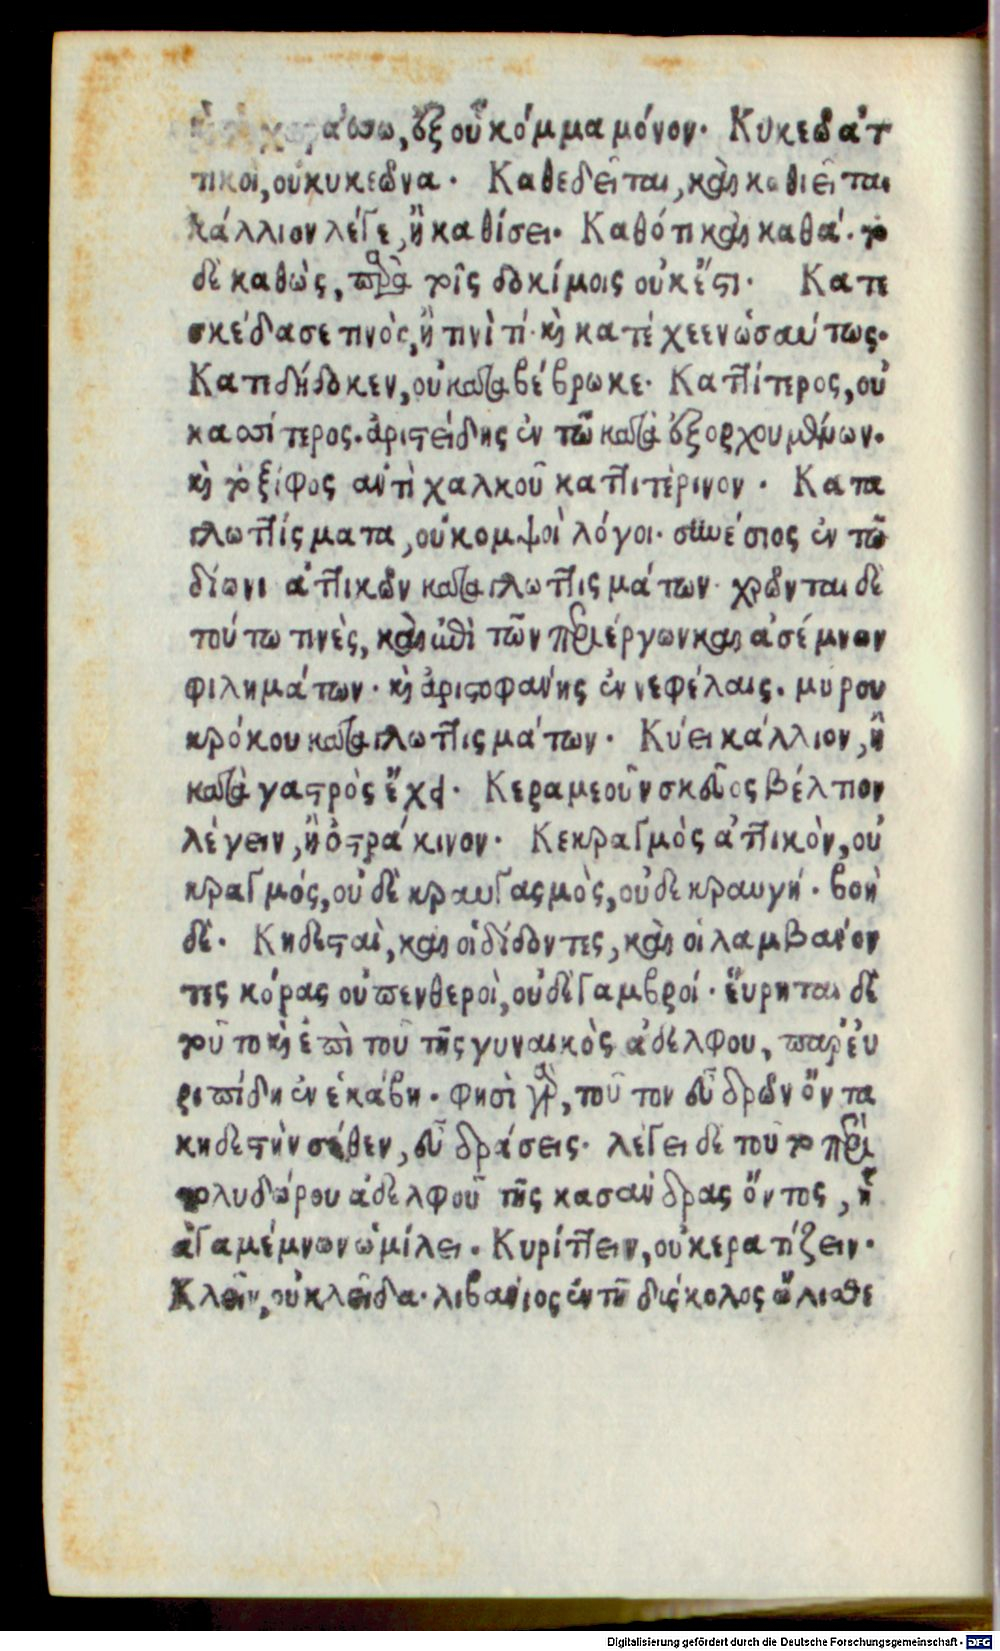 χαράσσω, ἐξ οὗ κόμμα μόνον. Κυκεῶ ἀτ
τικοὶ, οὐ κυκεῶνα. Καθεδεῖται, καὶ καθιεῖται
κάλλιον λέγε, ἢ καθίσει. Καθότι καὶ καθά. τὸ
δὲ καθὼς, παρὰ τοῖς δοκίμοις οὐκ ἔστι. Κατε
σκέδασε τινὸς, ἢ τινὶ τί. καὶ κατέχεεν ὡσαύτως.
Κατεδήδοκεν, οὐ καταβέβρωκε. Καττίτερος, οὐ
κασσίτερος. ἀριστείδης ἐν τῷ κατὰ ἐξορχουμένων.
καὶ τὸ ξίφος αὐτὶ χαλκοῦ καττιτέρινον. Κατα
γλωττίσματα, οὐ κομψοὶ λόγοι. συνέσιος ἐν τῷ
δίωνι ἀττικῶν καταγλωττισμάτων. χρῶνται δὲ
τούτω τινὲς, καὶ ἐπὶ τῶν περιέργων καὶ ἀσέμνων
φιλημάτων. καὶ ἀριστοφάνης ἐν νεφέλαις. μύρου
κρόκου καταγλωττισμάτων. Κύει κάλλιον, ἢ
κατὰ γαστρὸς ἔχει. Κεραμεοῦν σκεῦος βέλτιον
λέγειν, ἢ ὀστράκινον. Κεκραγμὸς ἀττικὸν, οὐ
κραγμός, οὐδὲ κραυγασμὸς, οὐδὲ κραυγή. βοὴ
δέ. Κηδεσταὶ, καὶ οἱ δίδοντες, καὶ οἱ λαμβάνον
τες κόρας οὐ πενθεροὶ, οὐδὲ γαμβροί. ἕυρηται δὲ
τοῦτο καὶ ἐπὶ τοῦ τῆς γυναικὸς ἀδελφου, παρ' ἐυ
ριπίδη ἐν ἑκάβη. φησὶ γὰρ, τοῦτον εὖ δρῶν ὄντα
κηδεστὴν σέθεν, εὖ δράσεις. λέγει δὲ τοῦτο περὶ
πολυδώρου ἀδελφοῦ τῆς κασάνδρας ὄντος, ᾗ
ἀγαμέμνων ὡμίλει. Κυρίττειν, οὐ κερατίζειν.
Κλεῖν, οὐ κλεῖδα. λιβάνιος ἐν τῆ δύσκολος ὤλισθε
Digitalisierung gefördert durch die Deutsche Forschungsgemeinschaft - DFG